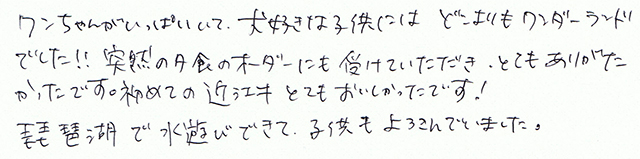 ワンちゃんがいっぱいいて、犬好きな子供には どこよりもワンダーランド
でした!! 突然の夕食のオーダーにも 受けていただき、とてもありがた
かったです。初めての近江牛 とてもおいしかったです!
琵琶湖で水遊びできて、子供もよろこんでいました。